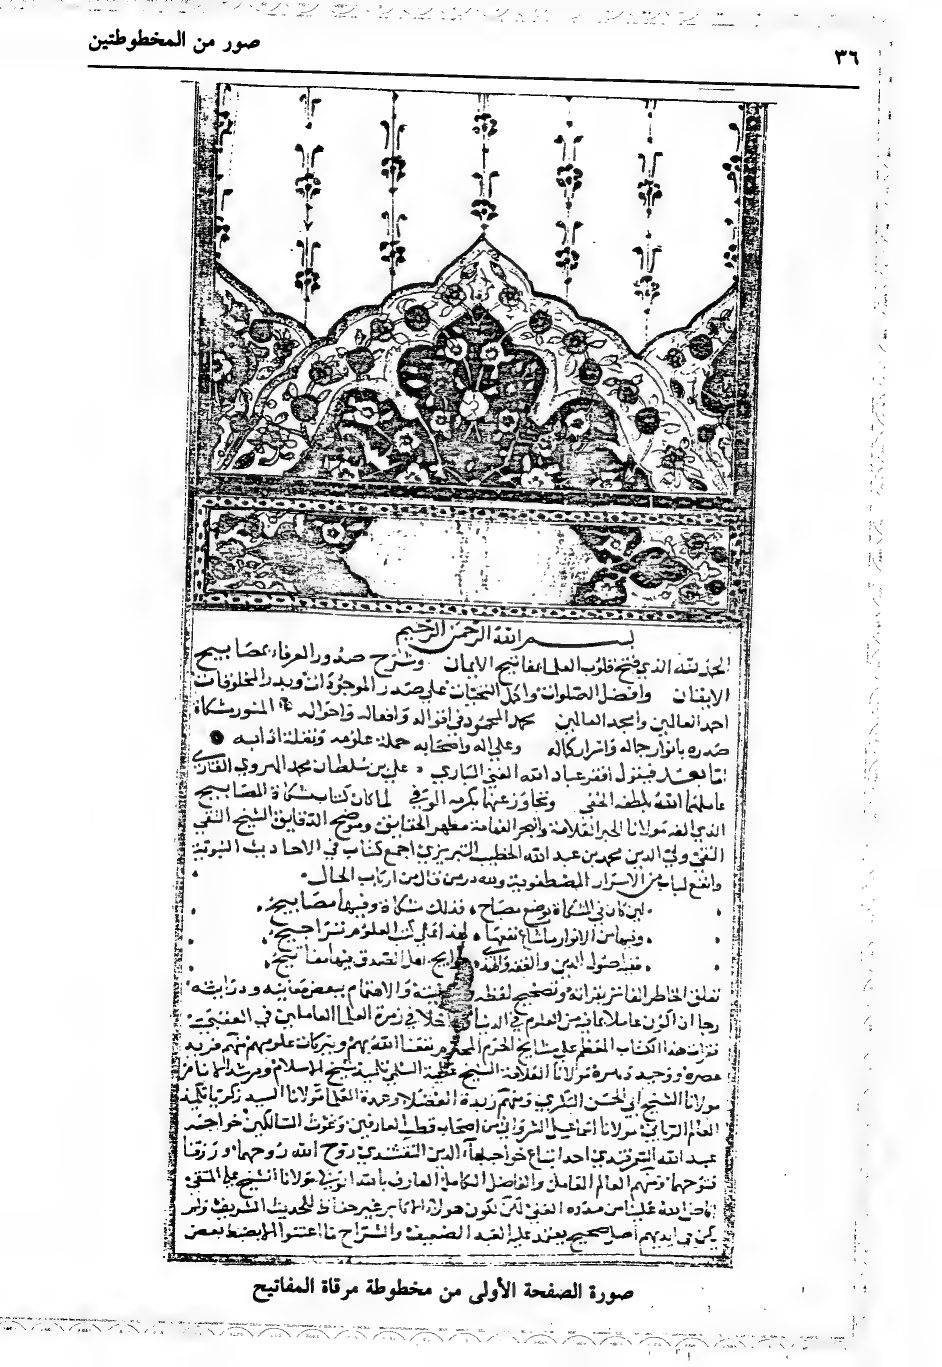 ٣٦
صور من المخطوطتين
بسم الله الرحمن الرحيم
الحمد لله الذي فتح قلوب العلماء بمفاتيح الايمان وشرح صدور العرفاء بمصابيح
الايقان وافضل الصلوات واكمل التحيات على صدر الموجودات وبدر المخلوقات
احمد العالمين وامجد العالمين محمد المحمود في اقواله وافعاله واحواله المنور مشكاة
صدره بانوار جماله واسرار كماله وعلى اله واصحابه حملة علومه ونقلة ادابه
اما بعد فيقول افقر عباد الله الغني الباري علي بن سلطان محمد الهروي القاري
عاملهما الله بلطفه الخفي وتجاوز عنهما بكرمه الوفي لما كان كتاب مشكاة المصابيح
الذي الفه مولانا الحبر العلامة والبحر الفهامة مظهر الحقايق وموضح الدقايق الشيخ التقي
النقي ولي الدين محمد بن عبد الله الخطيب التبريزي اجمع كتاب في الاحاديث النبوية
وانفع لباب من الاسرار المصطفوية ولله در من قال من ارباب الحال
لئن كان في المشكاة يوضع مصباح فذلك مشكاة وفيها مصابيح
وفيها من الانوار ما شاع نفعها لهذا على كتب العلوم تراجيح
ففيه اصول الدين والفقه والهدى حوايج اهل الصدق فيها مفاتيح
تعلق الخاطر الفاتر بقراءته وتصحيح لفظه والاهتمام ببعض معانيه ودرايته
رجا ان اكون عاملا بما فيه من العلوم في الدنيا داخلا في زمرة العلما العاملين في العقبى
فقرات هذا الكتاب المعظم على مشايخ الحرم المحترم نفعنا الله بهم وببركات علومهم منهم فريد
عصره ووحيد دهره مولانا العلامة الشيخ عطية السلمي تلميذ شيخ الاسلام ومرشد الانام
مولانا الشيخ ابي الحسن البكري ومنهم زبدة الفضلا وعمدة العلما مولانا السيد زكريا تلميذ
العالم الرباني مولانا اسماعيل الشرواني من اصحاب قطب العارفين وغوث السالكين خواجه
عبيد الله السمرقندي احد اتباع خواجه بهاء الدين النقشبندي روح الله روحهما ورزقنا
فتوحهما ومنهم العالم العامل والفاضل الكامل العارف بالله الولي مولانا الشيخ علي المتقي
افاض الله علينا من مدده العلي لكن لكون هولاء الاكابر غير حفاظ للحديث الشريف ولم
يكن في ايديهم اصل صحيح يعتمد عليه العبد الضعيف والشراح ما اعتنوا الا بضبط بعض
صورة الصفحة الأولى من مخطوطة مرقاة المفاتيح